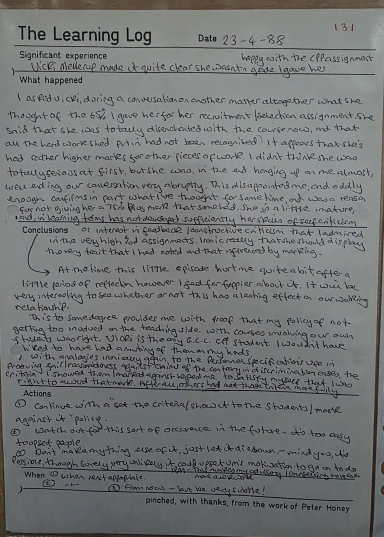 131
The Learning Log
Date 23-4-88
Significant experience
happy with the CPP assignment
Vicki Mellerup made it quite clear she wasn't grade I gave her.
What happened
I asked Vicki, during a conversation on another matter altogether what she
thought of the 65% I gave her for her recruitment/selection assignment. She
said that she was totally disenchanted with the course now, and that
all the hard work she'd put in had not been recognised! It appears that she's
had rather higher marks for other pieces of work. I didn't think she was
totally serious at first, but she was, in the end hanging up on me almost,
well ending our conversation very abruptly. This disappointed me, and oddly
enough confirms in part what I've thought for some time and was a reason
for not giving her a 75% plus mark
mature,
and, in learning terms has not developed sufficiently her skills of self criticism
Conclusions
or interest in feedback/constructive criticism that I admired
in the very high assignments. Ironic really that she should display
the very trait that I had noted and that influenced my marking.
At the time this little episode hurt me quite a bit after a
little period of reflection however I feel far happier about it. It will be
very interesting to see whether or not this has a lasting effect on our working
relationship.
This to some degree provides me with proof that my policy of not
getting too involved on the teaching side, with courses involving our own
students was right. Vicki is the only student. I wouldn't have
liked to have had a mutiny of them on my hands
, with analogies ironically again to the Personnel Specifications use in
proving fair/reasonableness against claims of the contrary in discrimination cases, the
criteria I showed them I marked against helped me to satisfy myself that I was
right to award that mark. After all, others had met those criteria more fully
Actions
① Continue with a "set the criteria/show it to the students/mark
against it" policy.
② Watch out for this sort of occurrence in the future – it's too easy
to upset people
③ Don't make anything else of it, just let it die down – mind you, it's
possible, though surely very unlikely it could affect motivation to go on to do
When
① when next appropriate.
②
③ From now – but be very subtle!
pinched, with thanks, from the work of Peter Honey